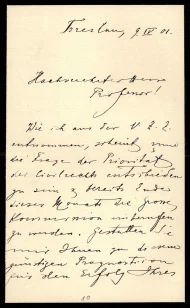 Breslau, 9 IV 01.
Hochverehrter Herr
Professor!
Wie ich aus der V. Z.
entnommen, scheint nun
die Frage der Priorität
des Civilrechts entschieden
zu sein & bereits Ende
dieses Monats die große
Kommission
zu werden. Gestatten Sie
mir Ihnen zu dem
günstigen
für den Erfolg Ihres
10